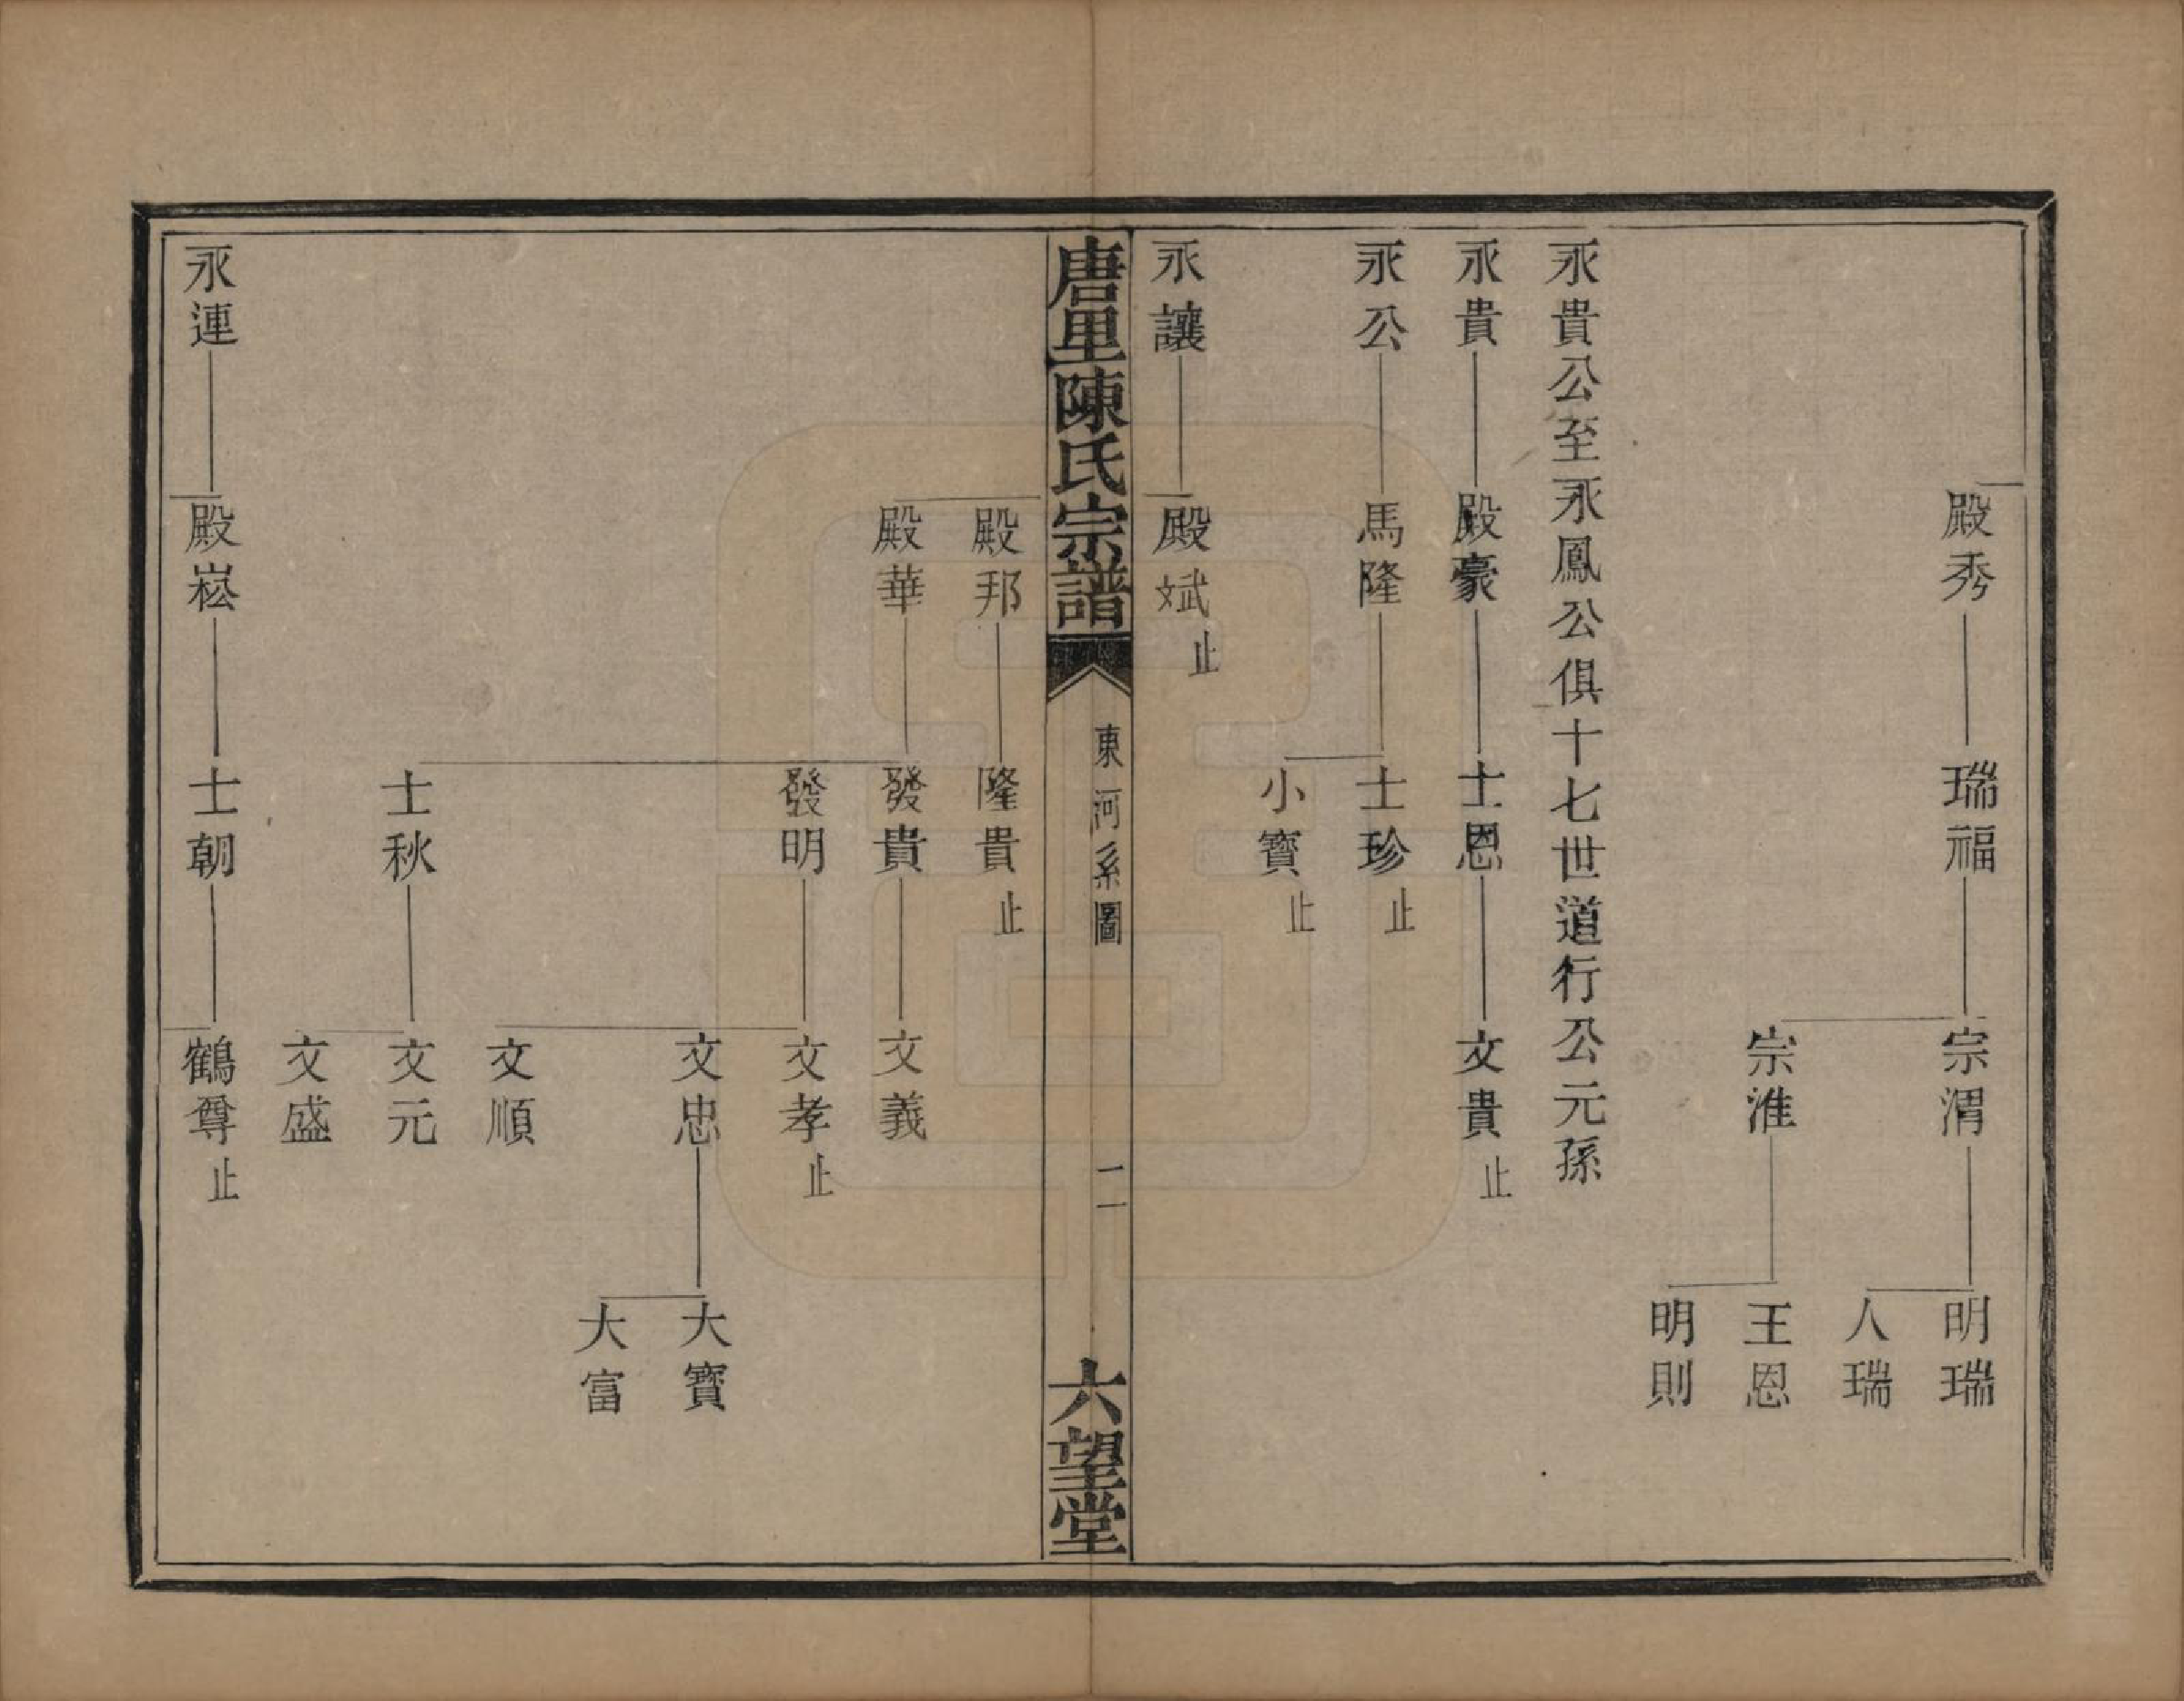 殿秀
瑞福
宗渭
明瑞
人瑞
宗淮
王恩
明則
永貴公至永鳳公俱十七世道行公元孫
永貴
殿豪
士恩
文貴止
永公
馬隆
士珍止
小寶止
永讓
殿斌止
唐里陳氏宗譜
東河系圖
二
六望堂
殿邦
隆貴止
殿華
發貴
文義
發明
文孝止
文忠
大寶
大富
文順
士秋
文元
文盛
永連
殿崧
士朝
鶴尊止